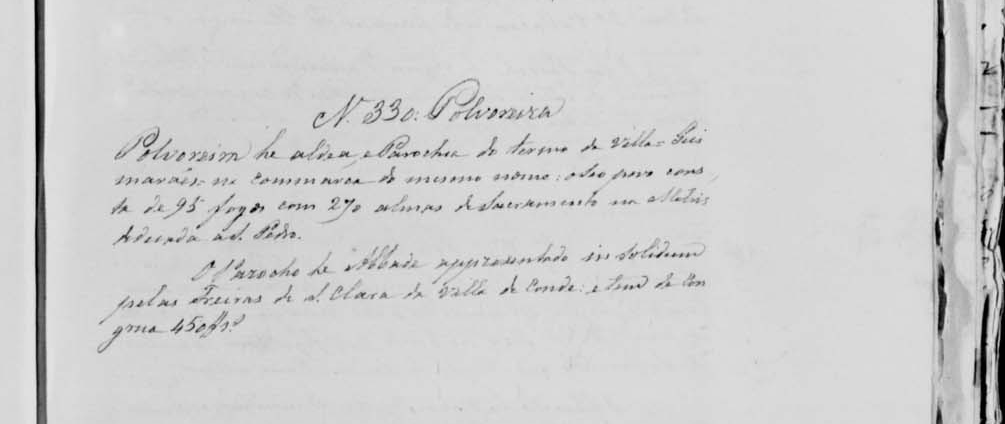 N. 330. Polvoreira
Polvoreira he aldea, e Parochia do termo da Villa = Gui
marães = na Commarca do mesmo nome: o seo povo cons,
ta de 95 fogos com 270 almas de Sacramento na Matris
dedicada a S. Pedro.
O Parocho he Abbade appresentado in solidum
pelas Freiras de S. Clara da Villa de Conde: e tem de Con
grua 450